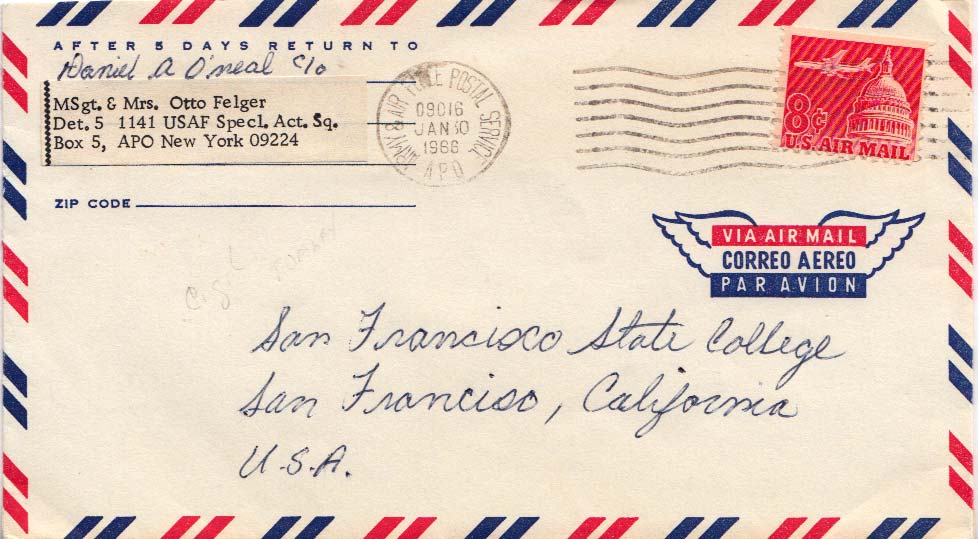 AFTER 5 DAYS RETURN TO
Daniel A O'neal c/o
MSgt. & Mrs. Otto Felger
Det. 5 1141 USAF Specl. Act. Sq.
Box 5, APO New York 09224
ZIP CODE
ARMY & AIR FORCE POSTAL SERVICE
09016
JAN 30
1966
APO
8¢
U.S. AIR MAIL
VIA AIR MAIL
CORREO AEREO
PAR AVION
San Francisco State College
San Francisco, California
U.S.A.